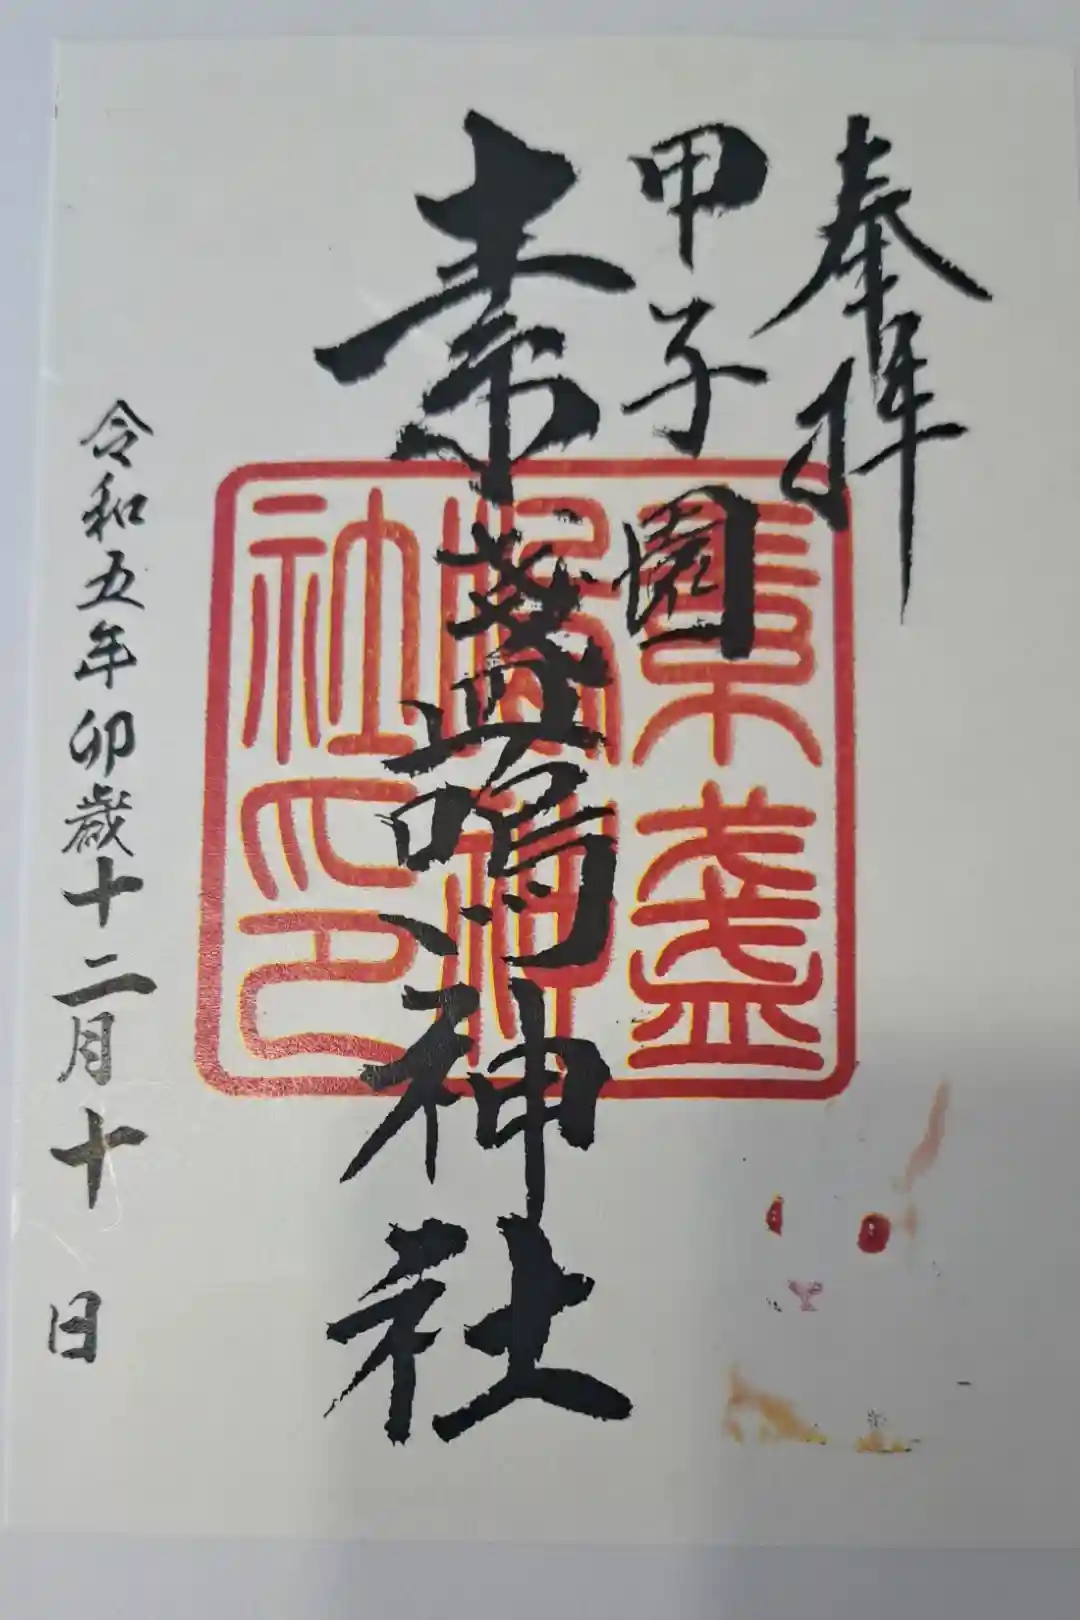 奉拝
甲子園
素盞嗚神社
令和五年卯歳十二月十日
素盞
嗚神
社印